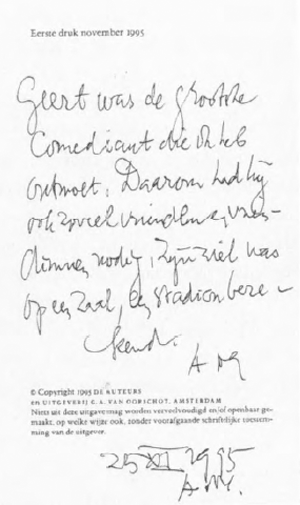 Eerste druk november 1995
Geert was de grootste
Comediant die ik heb
ontmoet. Daarom had hij
ook zoveel vrienden &, vrien-
dinnen nodig, zijn ziel was
op een zaal, een stadion bere-
kend.
© Copyright 1995 DE AUTEURS
en UITGEVERIJ G. A. VAN OORSCHOT, AMSTERDAM
Niets uit deze uitgave mag worden verveelvoudigd en/of openbaar ge-
maakt, op welke wijze ook, zonder voorafgaande schriftelijke toestem-
ming van de uitgever.
25 XI 1995